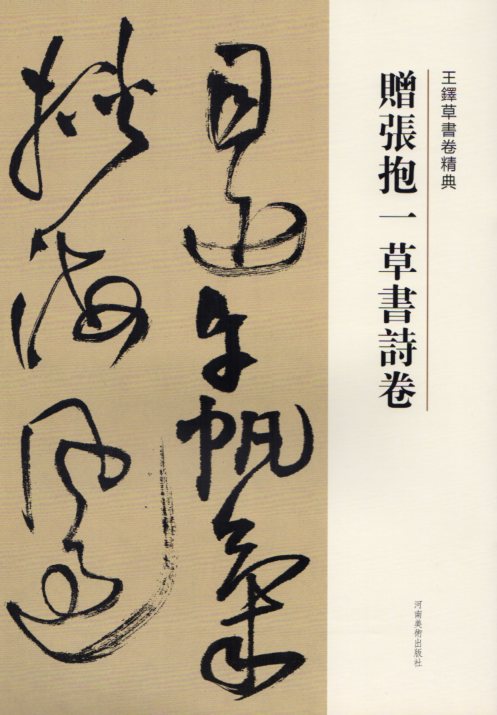 王鐸草書卷精典
贈張抱一草書詩卷
河南美術出版社
帆氣
海風